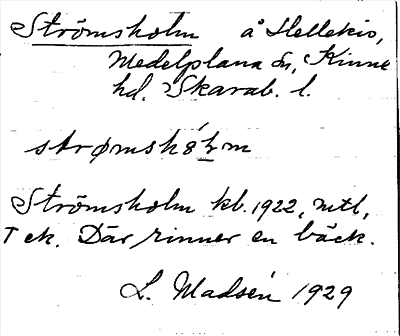 Strömsholm å Hellekis,
Medelplana sn, Kinne
hd. Skarab. l.
strømshȣ́ɫm
Strömsholm kb. 1922, mtl,
T ek. Där rinner en bäck.
L. Madsén 1929